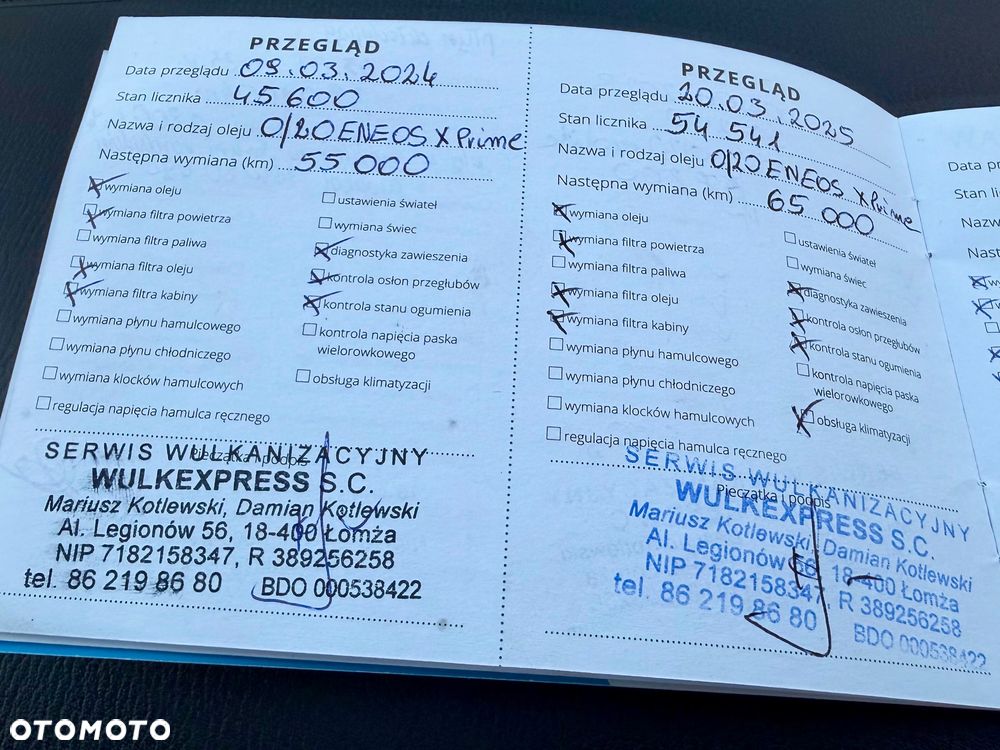 PRZEGLĄD
Data przeglądu 09.03.2024
Stan licznika 45 600
Nazwa i rodzaj oleju 0/20 ENEOS X Prime
Następna wymiana (km) 55 000
wymiana oleju
wymiana filtra powietrza
wymiana filtra paliwa
wymiana filtra oleju
wymiana filtra kabiny
wymiana płynu hamulcowego
wymiana płynu chłodniczego
wymiana klocków hamulcowych
regulacja napięcia hamulca ręcznego
ustawienia świateł
wymiana świec
diagnostyka zawieszenia
kontrola osłon przegłubów
kontrola stanu ogumienia
kontrola napięcia paska
wielorowkowego
obsługa klimatyzacji
Pieczątka i podpis
SERWIS WULKANIZACYJNY
WULKEXPRESS S.C.
Mariusz Kotlewski, Damian Kotlewski
Al. Legionów 56, 18-400 Łomża
NIP 7182158347, R 389256258
tel. 86 219 86 80 BDO 000538422
PRZEGLĄD
Data przeglądu 20.03.2025
Stan licznika 54 541
Nazwa i rodzaj oleju 0/20 ENEOS X Prime
Następna wymiana (km) 65 000
wymiana oleju
wymiana filtra powietrza
wymiana filtra paliwa
wymiana filtra oleju
wymiana filtra kabiny
wymiana płynu hamulcowego
wymiana płynu chłodniczego
wymiana klocków hamulcowych
regulacja napięcia hamulca ręcznego
ustawienia świateł
wymiana świec
diagnostyka zawieszenia
kontrola osłon przegłubów
kontrola stanu ogumienia
kontrola napięcia paska
wielorowkowego
obsługa klimatyzacji
Pieczątka i podpis
SERWIS WULKANIZACYJNY
WULKEXPRESS S.C.
Mariusz Kotlewski, Damian Kotlewski
Al. Legionów 56, 18-400 Łomża
NIP 7182158347, R 389256258
tel. 86 219 86 80 BDO 000538422
Data pr
Stan li
Nazw
Nast
OTOMOTO